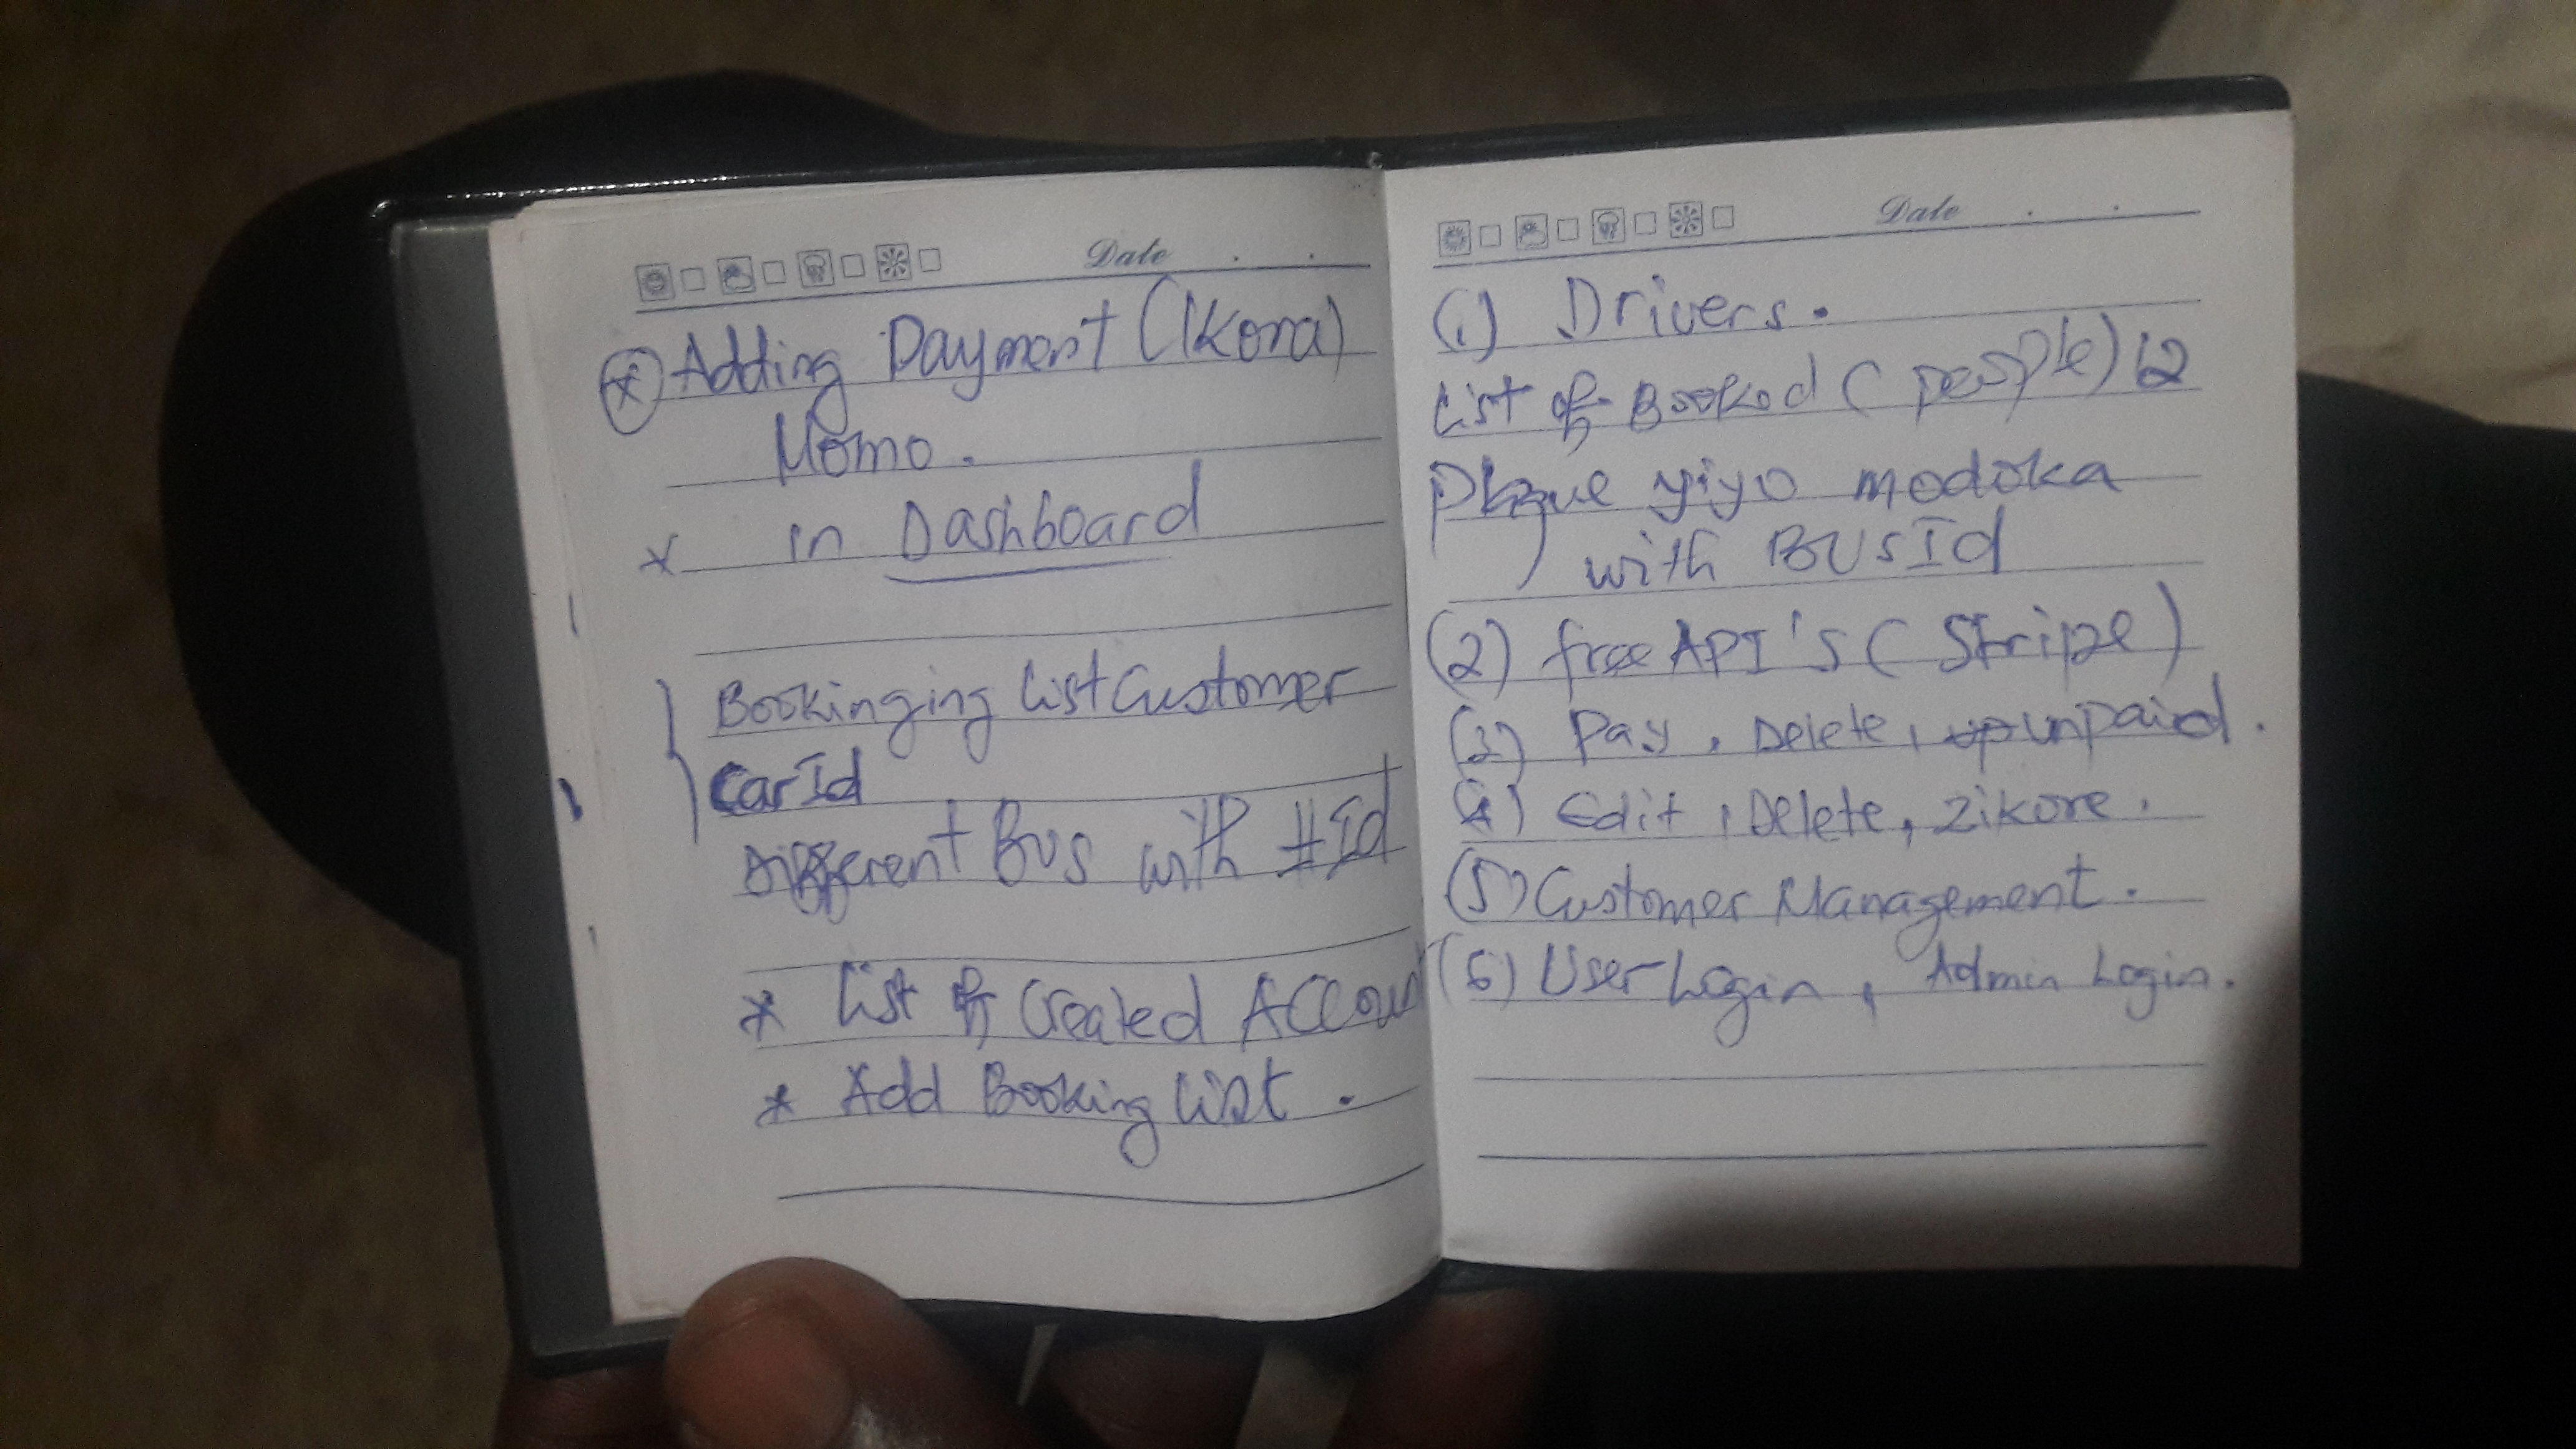 Date . .
* Adding Payment (Ikora)
Momo.
* in Dashboard
Bookinging list Customer
Car Id
Different Bus with #Id
* List of Created Accoun
* Add Booking list .
Date . .
(1) Drivers.
List of Booked (people) 12
Plaque yiyo modoka
with BUS Id
(2) free API's (Stripe)
(3) Pay, Delete, up unpaid.
(4) Edit, Delete, zikore.
(5) Customer Management.
(6) User Login, Admin Login.